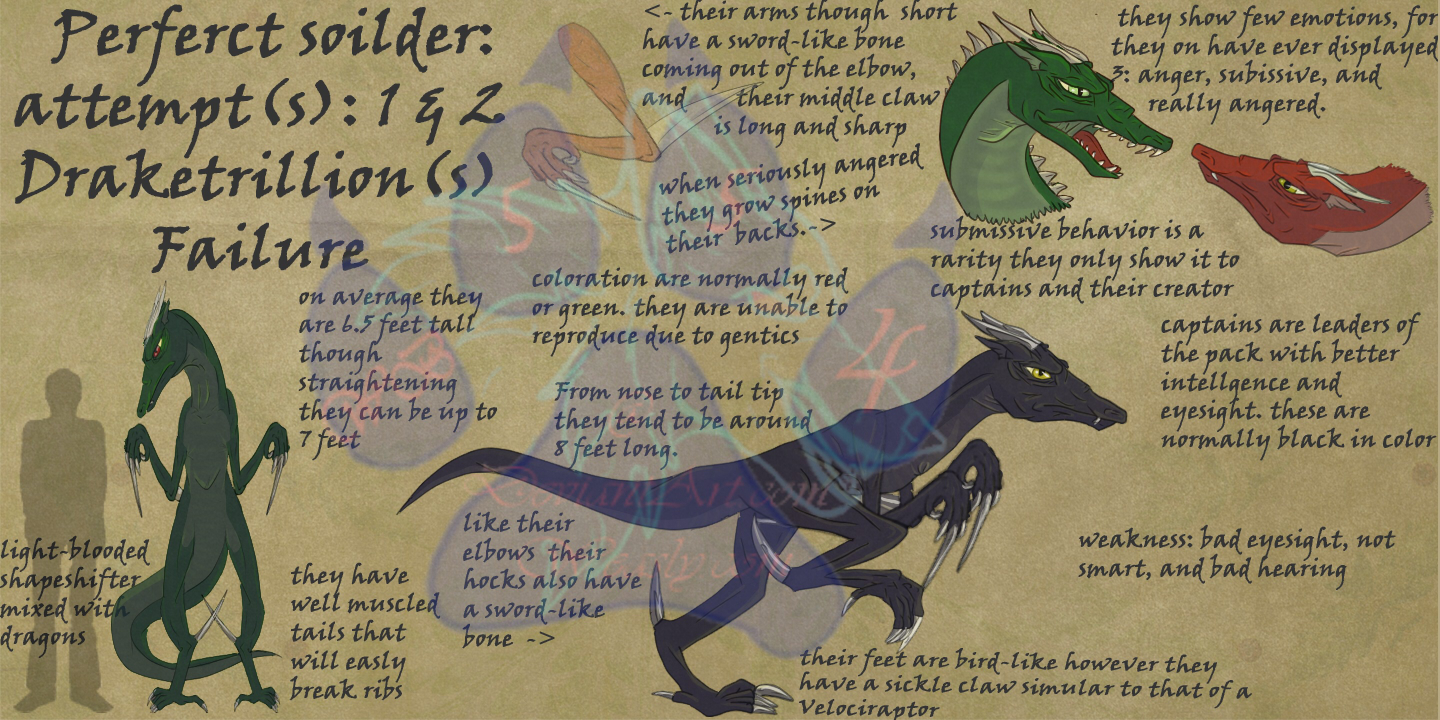 Perferct soilder:
attempt(s): 1 & 2
Draketrillion(s)
Failure
<- their arms though short
have a sword-like bone
coming out of the elbow,
and their middle claw
is long and sharp
when seriously angered
they grow spines on
their backs.->
they show few emotions, for
they on have ever displayed
3: anger, subissive, and
really angered.
submissive behavior is a
rarity they only show it to
captains and their creator
coloration are normally red
or green. they are unable to
reproduce due to gentics
on average they
are 6.5 feet tall
though
straightening
they can be up to
7 feet
From nose to tail tip
they tend to be around
8 feet long.
captains are leaders of
the pack with better
intellgence and
eyesight. these are
normally black in color
like their
elbows their
hocks also have
a sword-like
bone ->
weakness: bad eyesight, not
smart, and bad hearing
light-blooded
shapeshifter
mixed with
dragons
they have
well muscled
tails that
will easly
break ribs
their feet are bird-like however they
have a sickle claw simular to that of a
Velociraptor
5
4